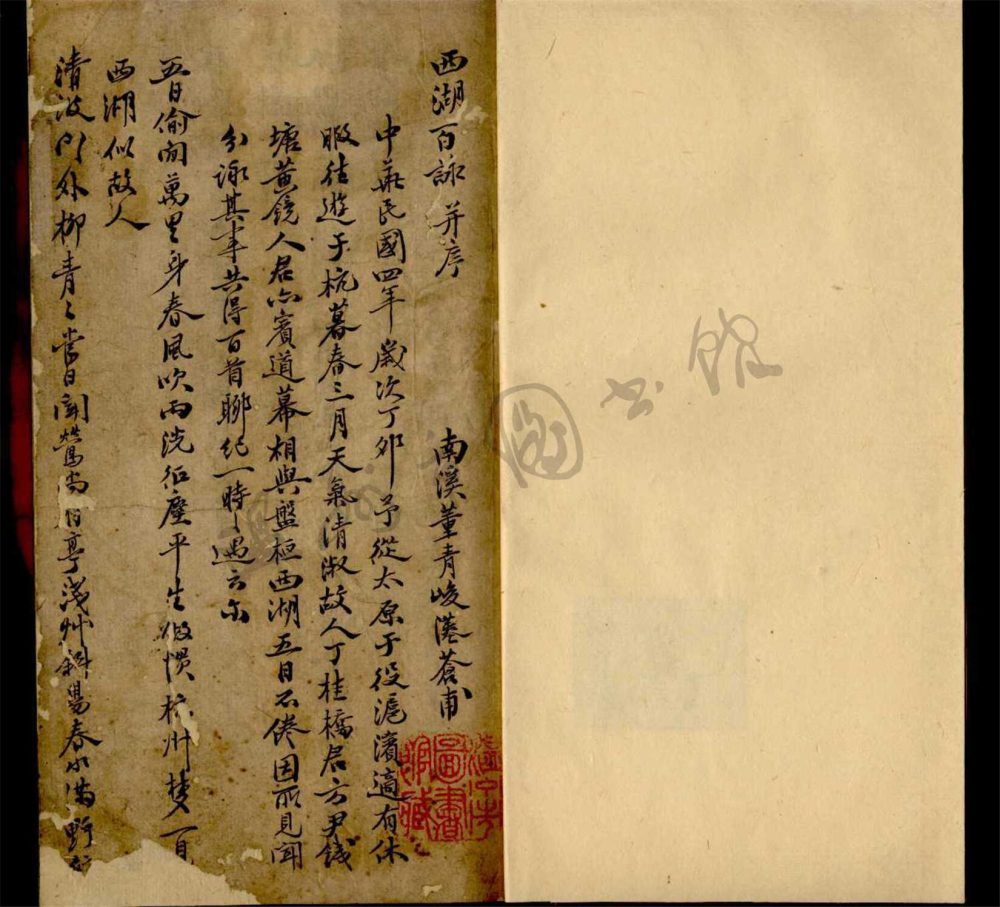 西湖百詠 并序
南溪董青峻蒼甫
中華民國四年歲次丁卯予從太原于役滬濱適有休
暇往遊于杭暮春三月天氣清淑故人丁桂橋君方尹錢
塘黃鏡人君亦賓道幕相與盤桓西湖五日不倦因所見聞
分詠其事共得百首聊紀一時之遇云尔
五日偷閒萬里身春風吹雨洗征塵平生做慣杭州夢一見
西湖似故人
清波門外柳青々當日聞鶯尚有亭淺艸斜陽春水滿野
圖書館藏
圖書館